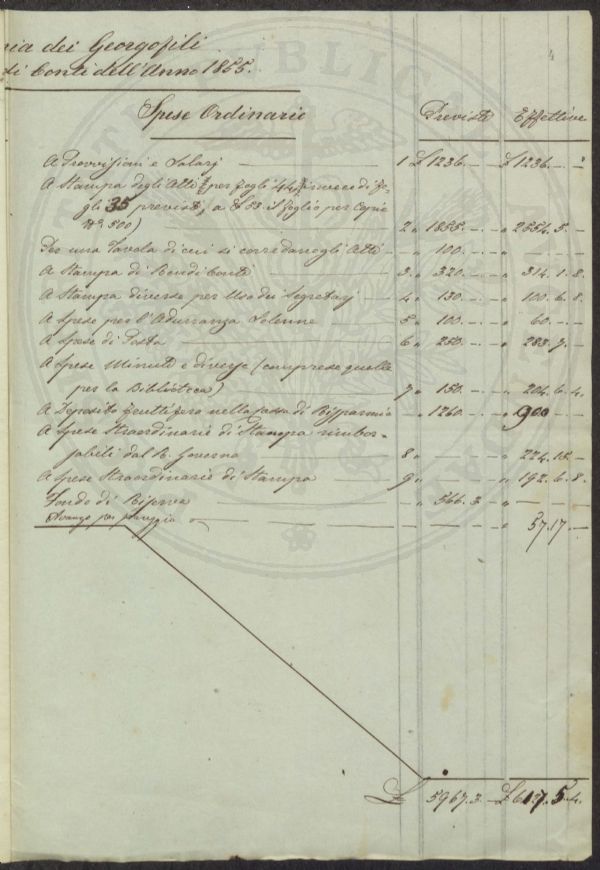 4
nia dei Georgofili
di Conti dell'Anno 1855.
Spese Ordinarie Previste Effettive
A Provvisioni e Salarj 1 £ 1236. — £ 1236. —
A Stampa degli Atti (per fogli 44 invece di fo-
gli 35 previsti, a £ 53 il foglio per Copie
N.° 500) 2 „ 1855. — „ 2554. 5. —
Per una Tavola di cui si corredano gli Atti — „ 100. — „ —
A Stampa di Rendiconti 3 „ 320. — „ 314. 1. 8.
A Stampa diverse per Uso dei Segretarj 4 „ 130. — „ 100. 6. 8.
A Spese per l'Adunanza Solenne 5 „ 100. — „ 60. —
A Spese di Posta 6 „ 250. — „ 283. 7. —
A Spese Minute e diverse (comprese quelle
per la Biblioteca) 7 „ 150. — „ 204. 6. 4.
A Deposito fruttifero nella Cassa di Risparmio „ 1260 — „ 900 —
A Spese Straordinarie di Stampa rimbor-
sabili dal R. Governo 8 „ — „ 224. 15. —
A Spese Straordinarie di Stampa 9 „ — „ 192. 6. 8.
Fondo di Riserva „ 566. 3. — „ —
Avanzo per pareggio — „ 57. 17. —
£ 5967. 3. — £ 617. 5. 4.